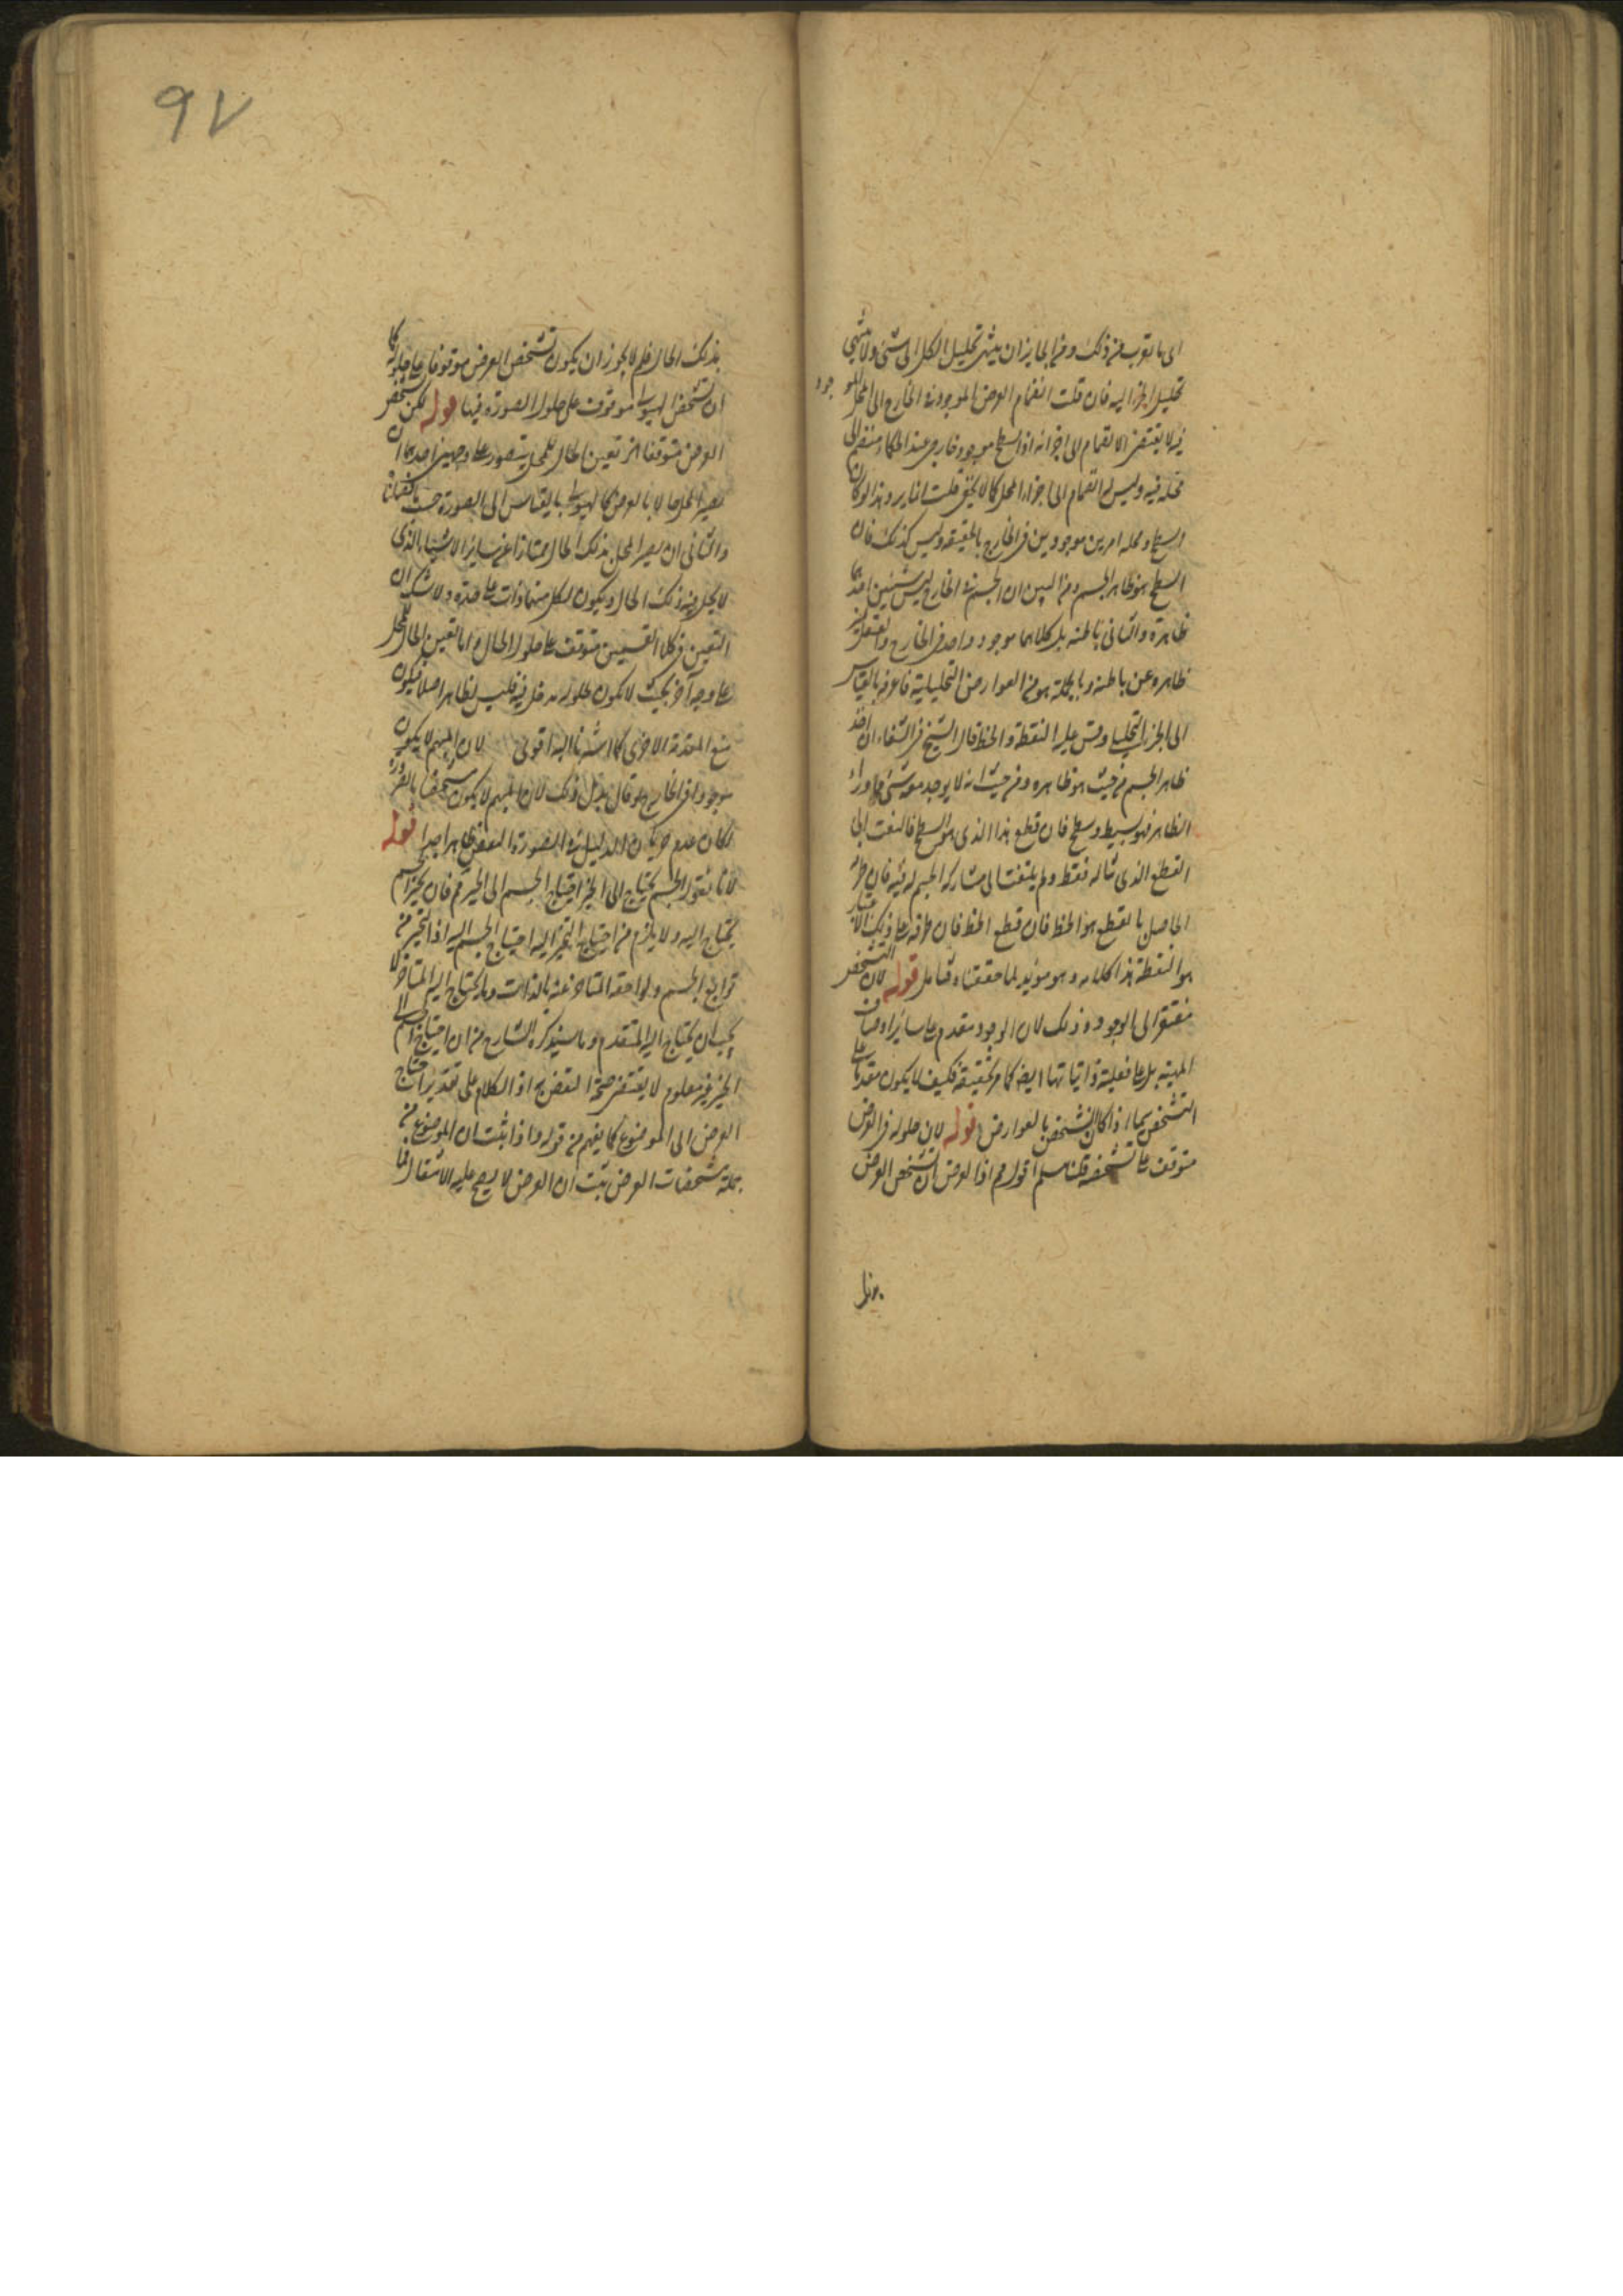 الى ما يقرب من ذلك ومن الجايز ان ينتهى تحليل الكل الى شئ ولا ينتهى
تحليل الجزء اليه فان قلت انضمام العرض الموجود فى الخارج الى المحل الموجود
فيه لا يقتضى الانضمام الى اجزائه اذ السطح موجود خارجى عند الحكماء منضم الى
محله فيه وليس له انضمام الى اجزاء المحل كما لا يخفى قلت انما يرد هذا لو كان
السطح ومحله امرين موجودين فى الخارج بالحقيقة وليس كذلك فان
السطح هو ظاهر الجسم ومن البين ان الجسم فى الخارج ليس شيئين احدهما
ظاهره والثانى باطنه بل كلاهما موجود واحد فى الخارج
ظاهره عن باطنه وبالجملة هو من العوارض التحليلية فاعرفه بالقياس
الى الجزء التحليلى وقس عليه النقطة والخط قال الشيخ فى الشفاء ان اخذ
ظاهر الجسم من حيث هو ظاهره ومن حيث انه لا يوجد معه شئ مما وراء
الظاهر فهو بسيط وسطح فان قطع هذا الذى هو السطح فالتفت الى
القطع الذى ناله فقط ولم يلتفت الى مشاركة الجسم له فيه فان طرفه
الحاصل بالقطع هو الخط فان قطع الخط فان طرفه على ذلك الاعتبار
هو النقطة هذا كلامه وهو مؤيد لما حققناه فتأمل قوله لان التشخص
مفتقر الى الوجود وذلك لان الوجود مقدم على ساير اوصاف
المهية بل على فعلية ذاتياتها ايضا كما مر تحقيقه فكيف لا يكون مقدما على
التشخص سيما اذا كان التشخص بالعوارض قوله لان حلوله فى العرض
متوقف على تشخصه قلنا سلم اقول مم اذا العرض ان تشخص العرض
بذلك
٩٧
بذلك الحال فلم لا يجوز ان يكون تشخص العرض موقوفا على حلوله كما
ان تشخص الهيولى موقوف على حلول الصورة فيها قوله لكن تشخص
العرض متوقفا الخ تعين الحال للمحل يتصور على وجهين احدهما ان
يصير المحل حالا بالعرض كالهيولى بالقياس الى الصورة
والثانى ان يصير المحل بذلك الحال ممتازا عن ساير الاشياء الذى
لا يحل فيه ذلك الحال ويكون لكل منهما ذات على حدة ولا شك ان
التعين فى كلا القسمين متوقف على حلول الحال واما تعين الحال للمحل
على وجه آخر بحيث لا يكون حلوله مدخل فيه فليس بظاهر اصلا فيكون
منع المقدمة الاخرى كما اشرنا اليه اقوى لان المبهم لا يكون
موجودا فى الخارج لو قال بدل ذلك لان المبهم لا يكون مشخصا بالضرورة
لكان عدم جريان الدليل فى الصورة النقض ظاهرا جيدا قوله
لانا نقول الجسم يحتاج الى الحيز احتياج الجسم الى الحيز مم فان تحيز الجسم
يحتاج اليه ولا يلزم من احتياج التحيز اليه احتياج الجسم اليه اذ التحيز من
توابع الجسم ولواحقه المتأخرة عنه بالذات وما يحتاج اليه المتأخر لا
يجب ان يحتاج اليه المتقدم وما سيذكره الشارح من ان احتياج الجسم الى
الحيز غير معلوم لا يقتضى صحة النقض به اذ الكلام على تقدير احتياج
العرض الى الموضوع كما يفهم من قوله واذا ثبت ان الموضوع من
جملة مشخصات العرض ثبت ان العرض لا يصح عليه الانتقال